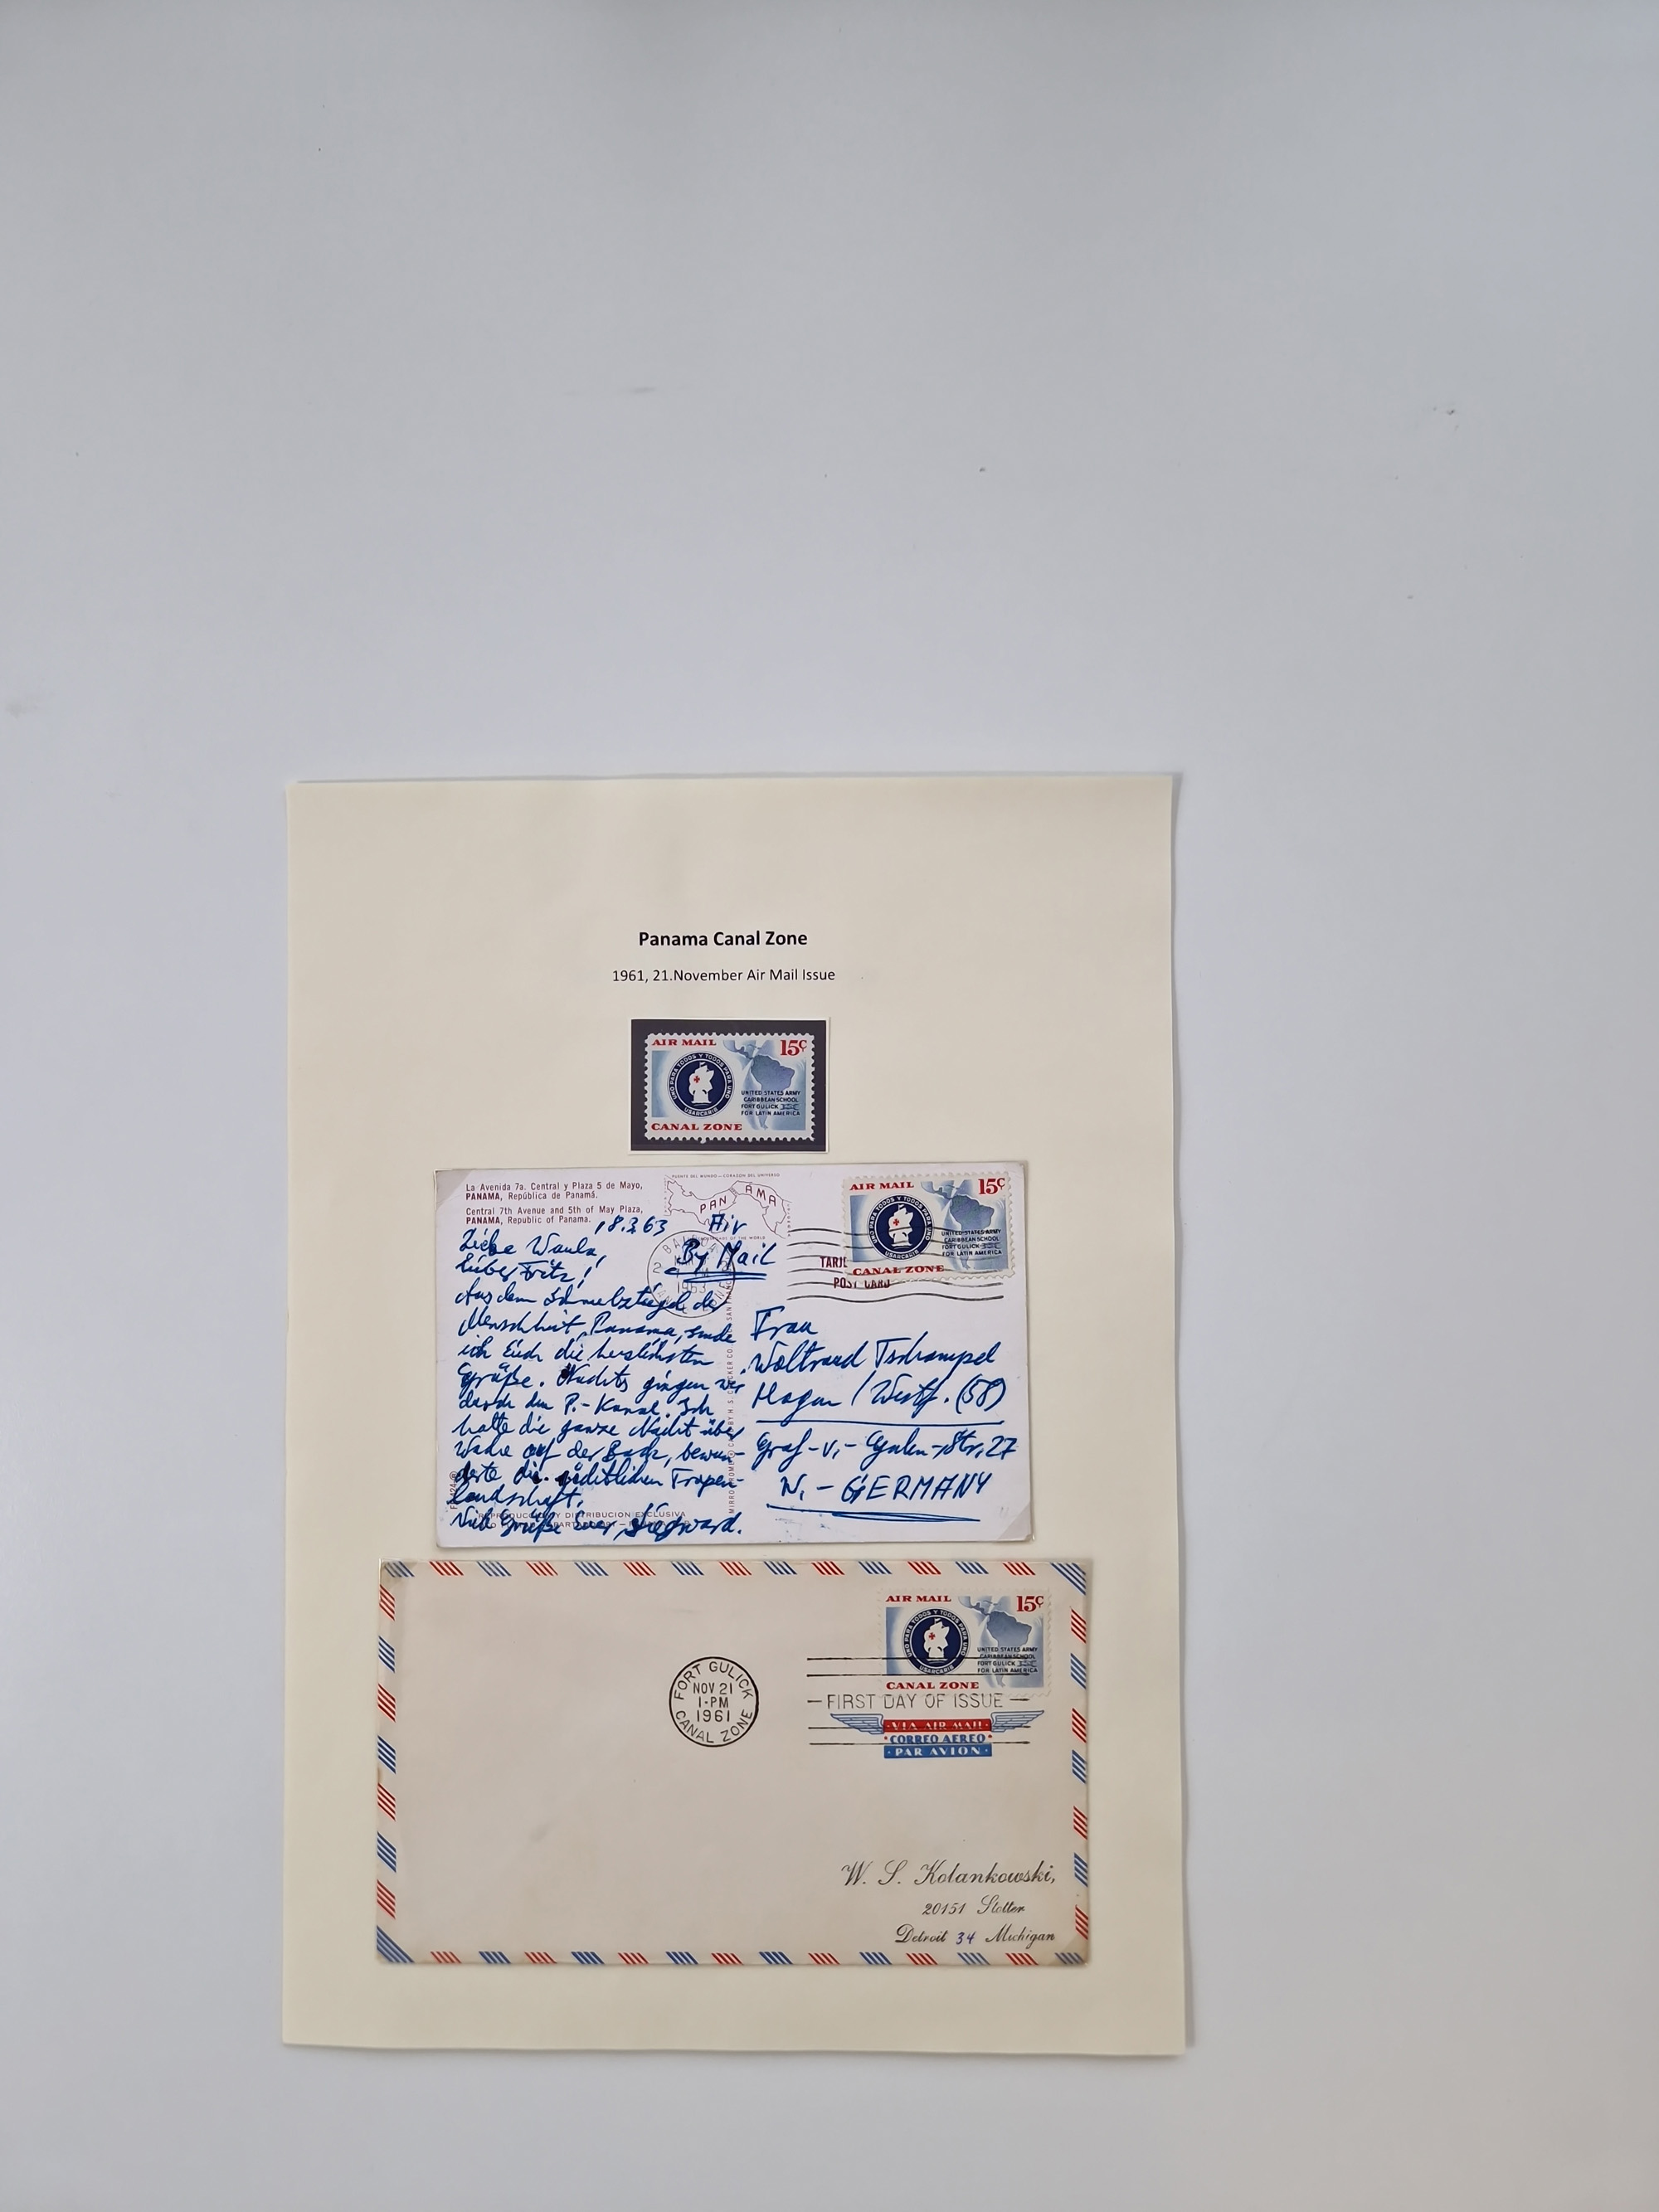 Panama Canal Zone
1961, 21.November Air Mail Issue
AIR MAIL 15¢
UNO PARA TODOS Y TODOS PARA UNO
USARCARIB
UNITED STATES ARMY
CARIBBEAN SCHOOL
FORT GULICK
FOR LATIN AMERICA
CANAL ZONE
La Avenida 7a. Central y Plaza 5 de Mayo,
PANAMA, República de Panamá.
Central 7th Avenue and 5th of May Plaza,
PANAMA, Republic of Panama.
PUENTE DEL MUNDO — CORAZON DEL UNIVERSO
PANAMA
18.3.63
Air
By Mail
BALBOA
1963
Liebe
lieber Fritz!
Aus dem Schmelztiegel der
Menschheit, Panama, sende
ich Euch die herzlichsten
Grüße. Nachts gingen wir
durch den P.-Kanal. Ich
hatte die ganze Nacht über
Wache auf der Back, bewun-
derte die nächtlichen Tropen-
landschaft.
Viele Grüße Euer Siegward.
REPRODUCCION Y DISTRIBUCION EXCLUSIVA
AIR MAIL 15¢
UNO PARA TODOS Y TODOS PARA UNO
UNITED STATES ARMY
CARIBBEAN SCHOOL
FORT GULICK
FOR LATIN AMERICA
CANAL ZONE
POST CARD
Frau
Waltraud Tschampel
Hagen / Westf. (58)
Graf-v.-Galen-Str. 27
W.-GERMANY
AIR MAIL 15¢
UNO PARA TODOS Y TODOS PARA UNO
USARCARIB
UNITED STATES ARMY
CARIBBEAN SCHOOL
FORT GULICK
FOR LATIN AMERICA
CANAL ZONE
FORT GULICK
NOV 21
1-PM
1961
CANAL ZONE
FIRST DAY OF ISSUE
VIA AIR MAIL
CORREO AEREO
PAR AVION
W. S. Kolankowski,
20151 Stotter
Detroit 34 Michigan